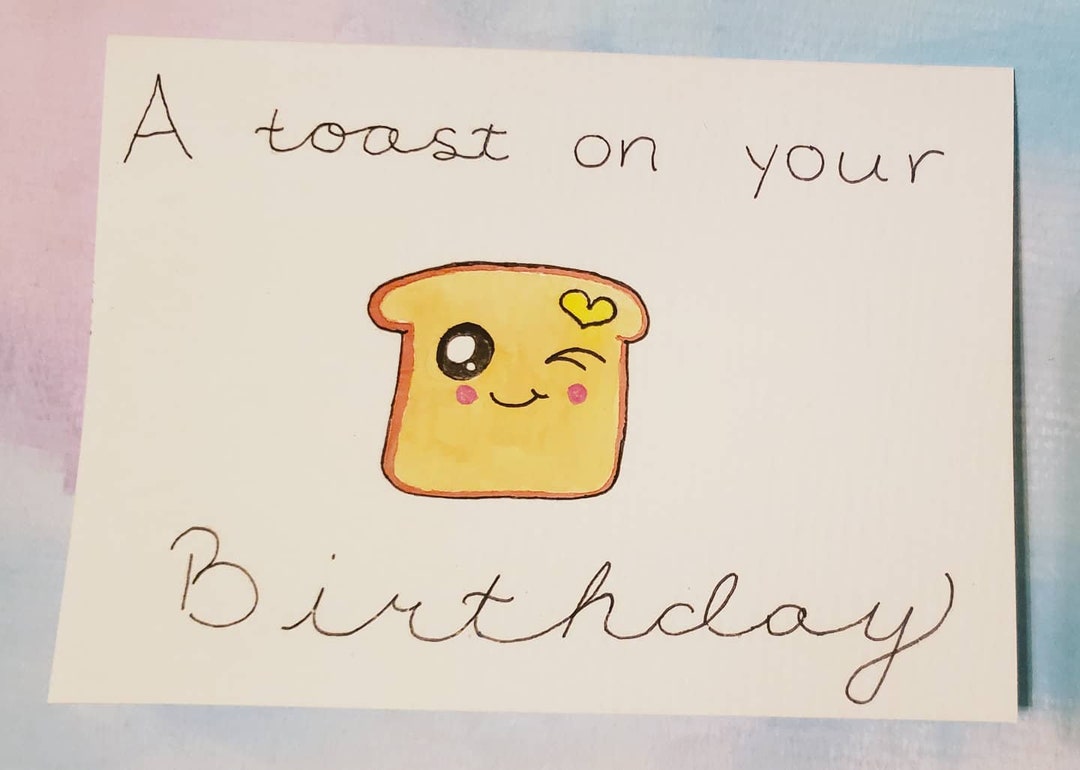 A toast on your
Birthday